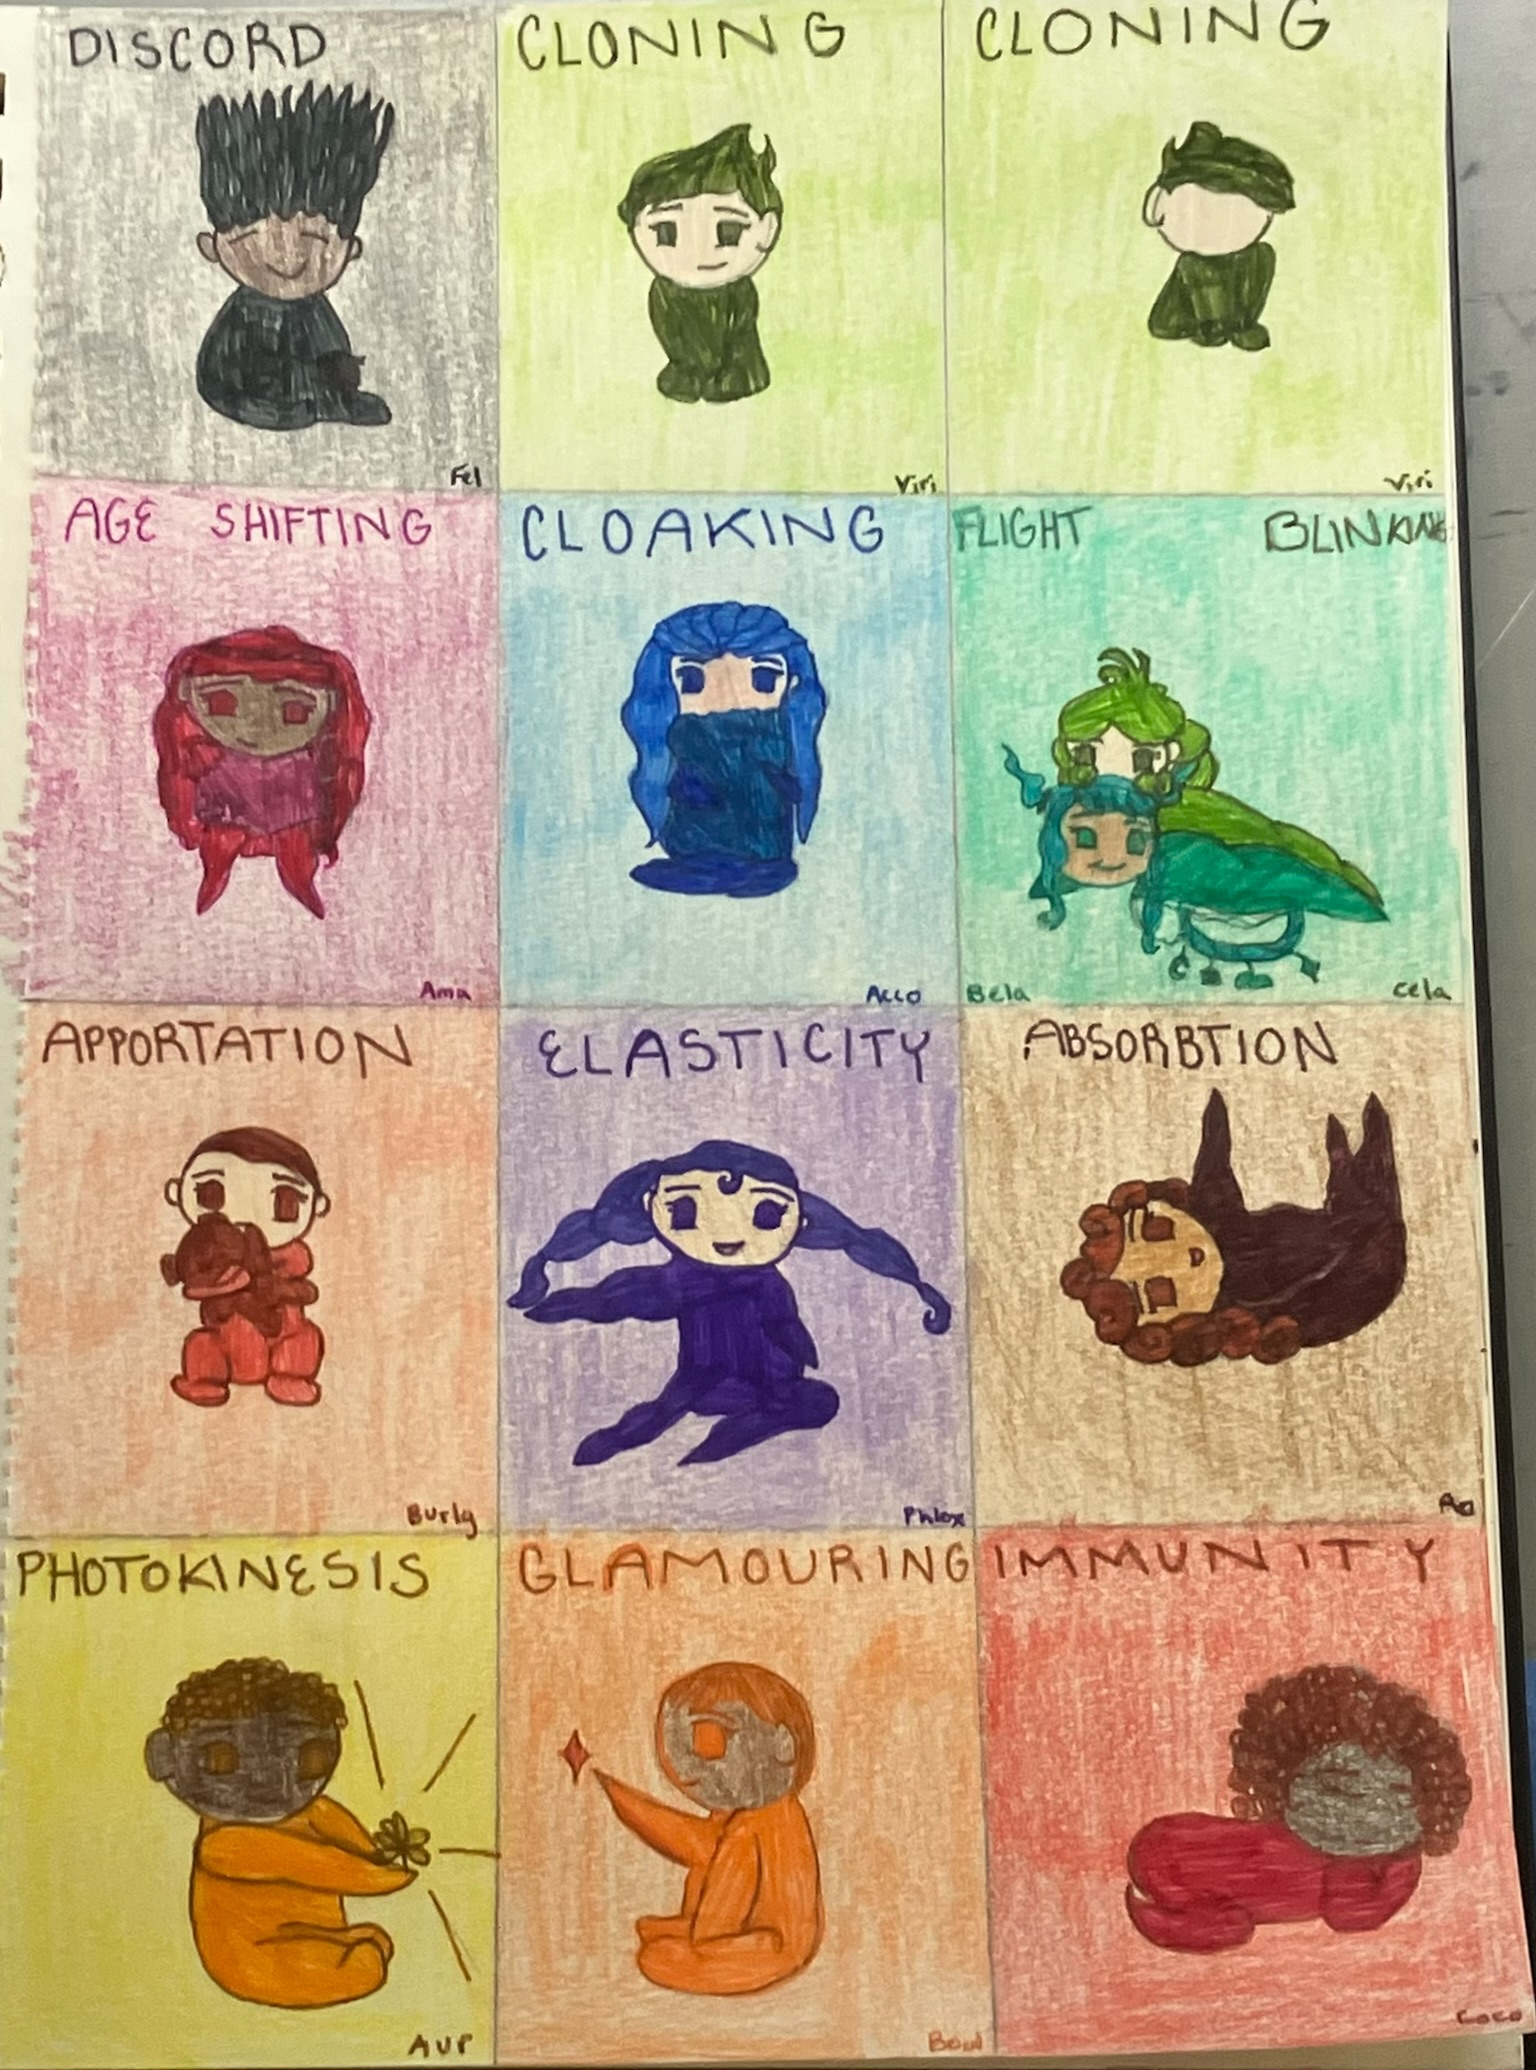 DISCORD
Fel
CLONING
Viri
CLONING
Viri
AGE SHIFTING
Ama
CLOAKING
Acco
FLIGHT
BLINKING
Bela
Cela
APPORTATION
Burly
ELASTICITY
Phlox
ABSORBTION
PHOTOKINESIS
Aur
GLAMOURING
IMMUNITY
Coco